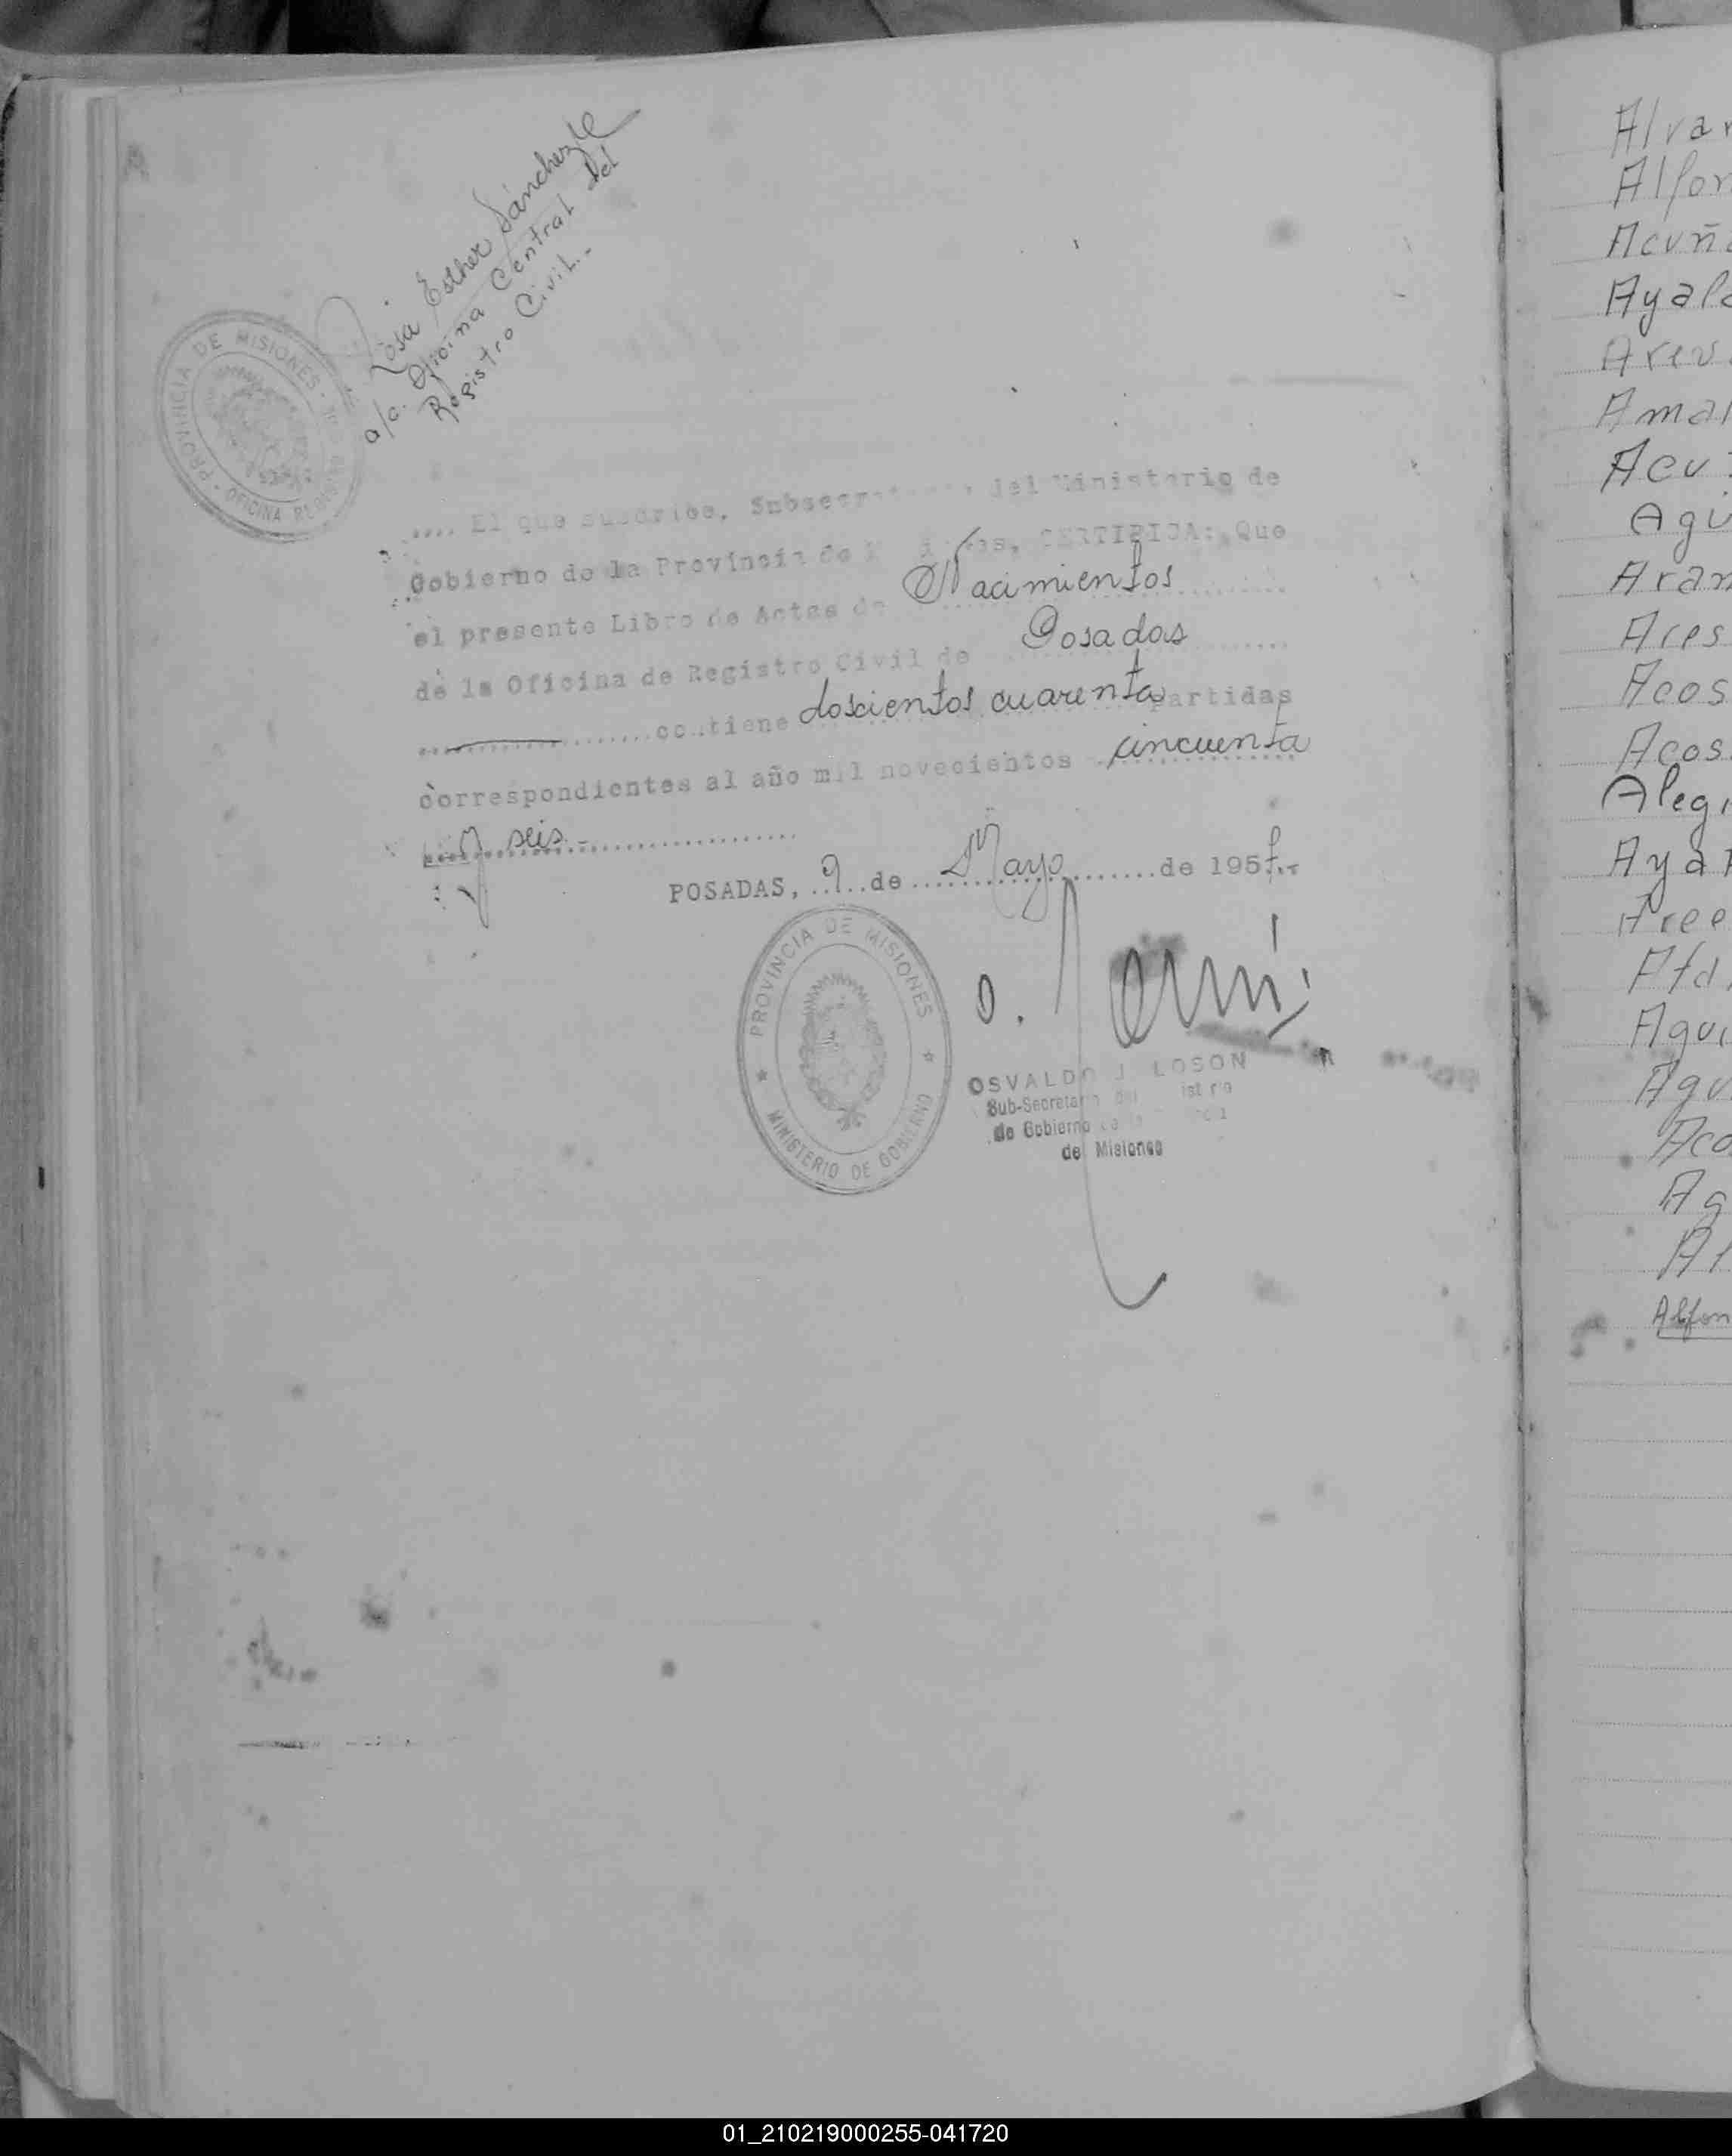 Rosa Esther Sánchez de
a/c. Oficina Central del
Registro Civil.-
PROVINCIA DE MISIONES
OFICINA REGISTRO
.... El que suscribe, Subsecretario del Ministerio de
Gobierno de la Provincia de Misiones, CERTIFICA: Que
el presente Libro de Actas de Nacimientos
de la Oficina de Registro Civil de Posadas
contiene doscientos cuarenta partidas
correspondientes al año mil novecientos cincuenta
y seis.-
POSADAS, 9 de Mayo de 1957.-
PROVINCIA DE MISIONES
MINISTERIO DE GOBIERNO
OSVALDO J. LOSON
Sub-Secretario del Ministerio
de Gobierno de la
de Misiones
Alvar
Alfon
Acuña
Ayala
Arev
Amar
Acu
Agu
Aran
Ares
Acos
Acos
Alegr
Ayal
Agui
Agu
Aco
Ag
Al
Alfon
01_210219000255-041720